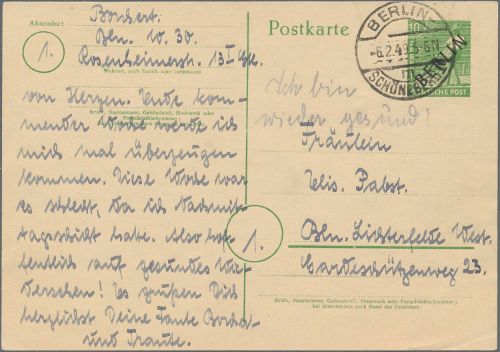 Absender:
Borchert.
Bln. W. 30.
Rosenheimerstr. 13 I Gh.
Wohnort, auch Zustell- oder Leitpostamt
1.
Straße, Hausnummer, Gebäudeteil, Stockwerk oder
Postschließfachnummer
von Herzen. Ende kom-
mender Woche werde ich
mich mal überzeugen
kommen. Diese Woche war
es schlecht, da ich Nachmit-
tagschicht hatte. Also hof-
fentlich auf gesundes Wie-
dersehen! Es grüßen Dich
herzlichst Deine Tante Borchert
und Traute.
Postkarte
BERLIN
-6.2.49
SCHÖNEBERG
BERLIN
10
DEUTSCHE POST
Ich bin
wieder gesund!
Fräulein
Elis. Pabst.
1.
Bln. Lichterfelde West.
Gardeschützenweg 23.
Straße, Hausnummer, Gebäudeteil, Stockwerk oder Postschließfachnummer;
bei Untermietern auch Name des Vermieters